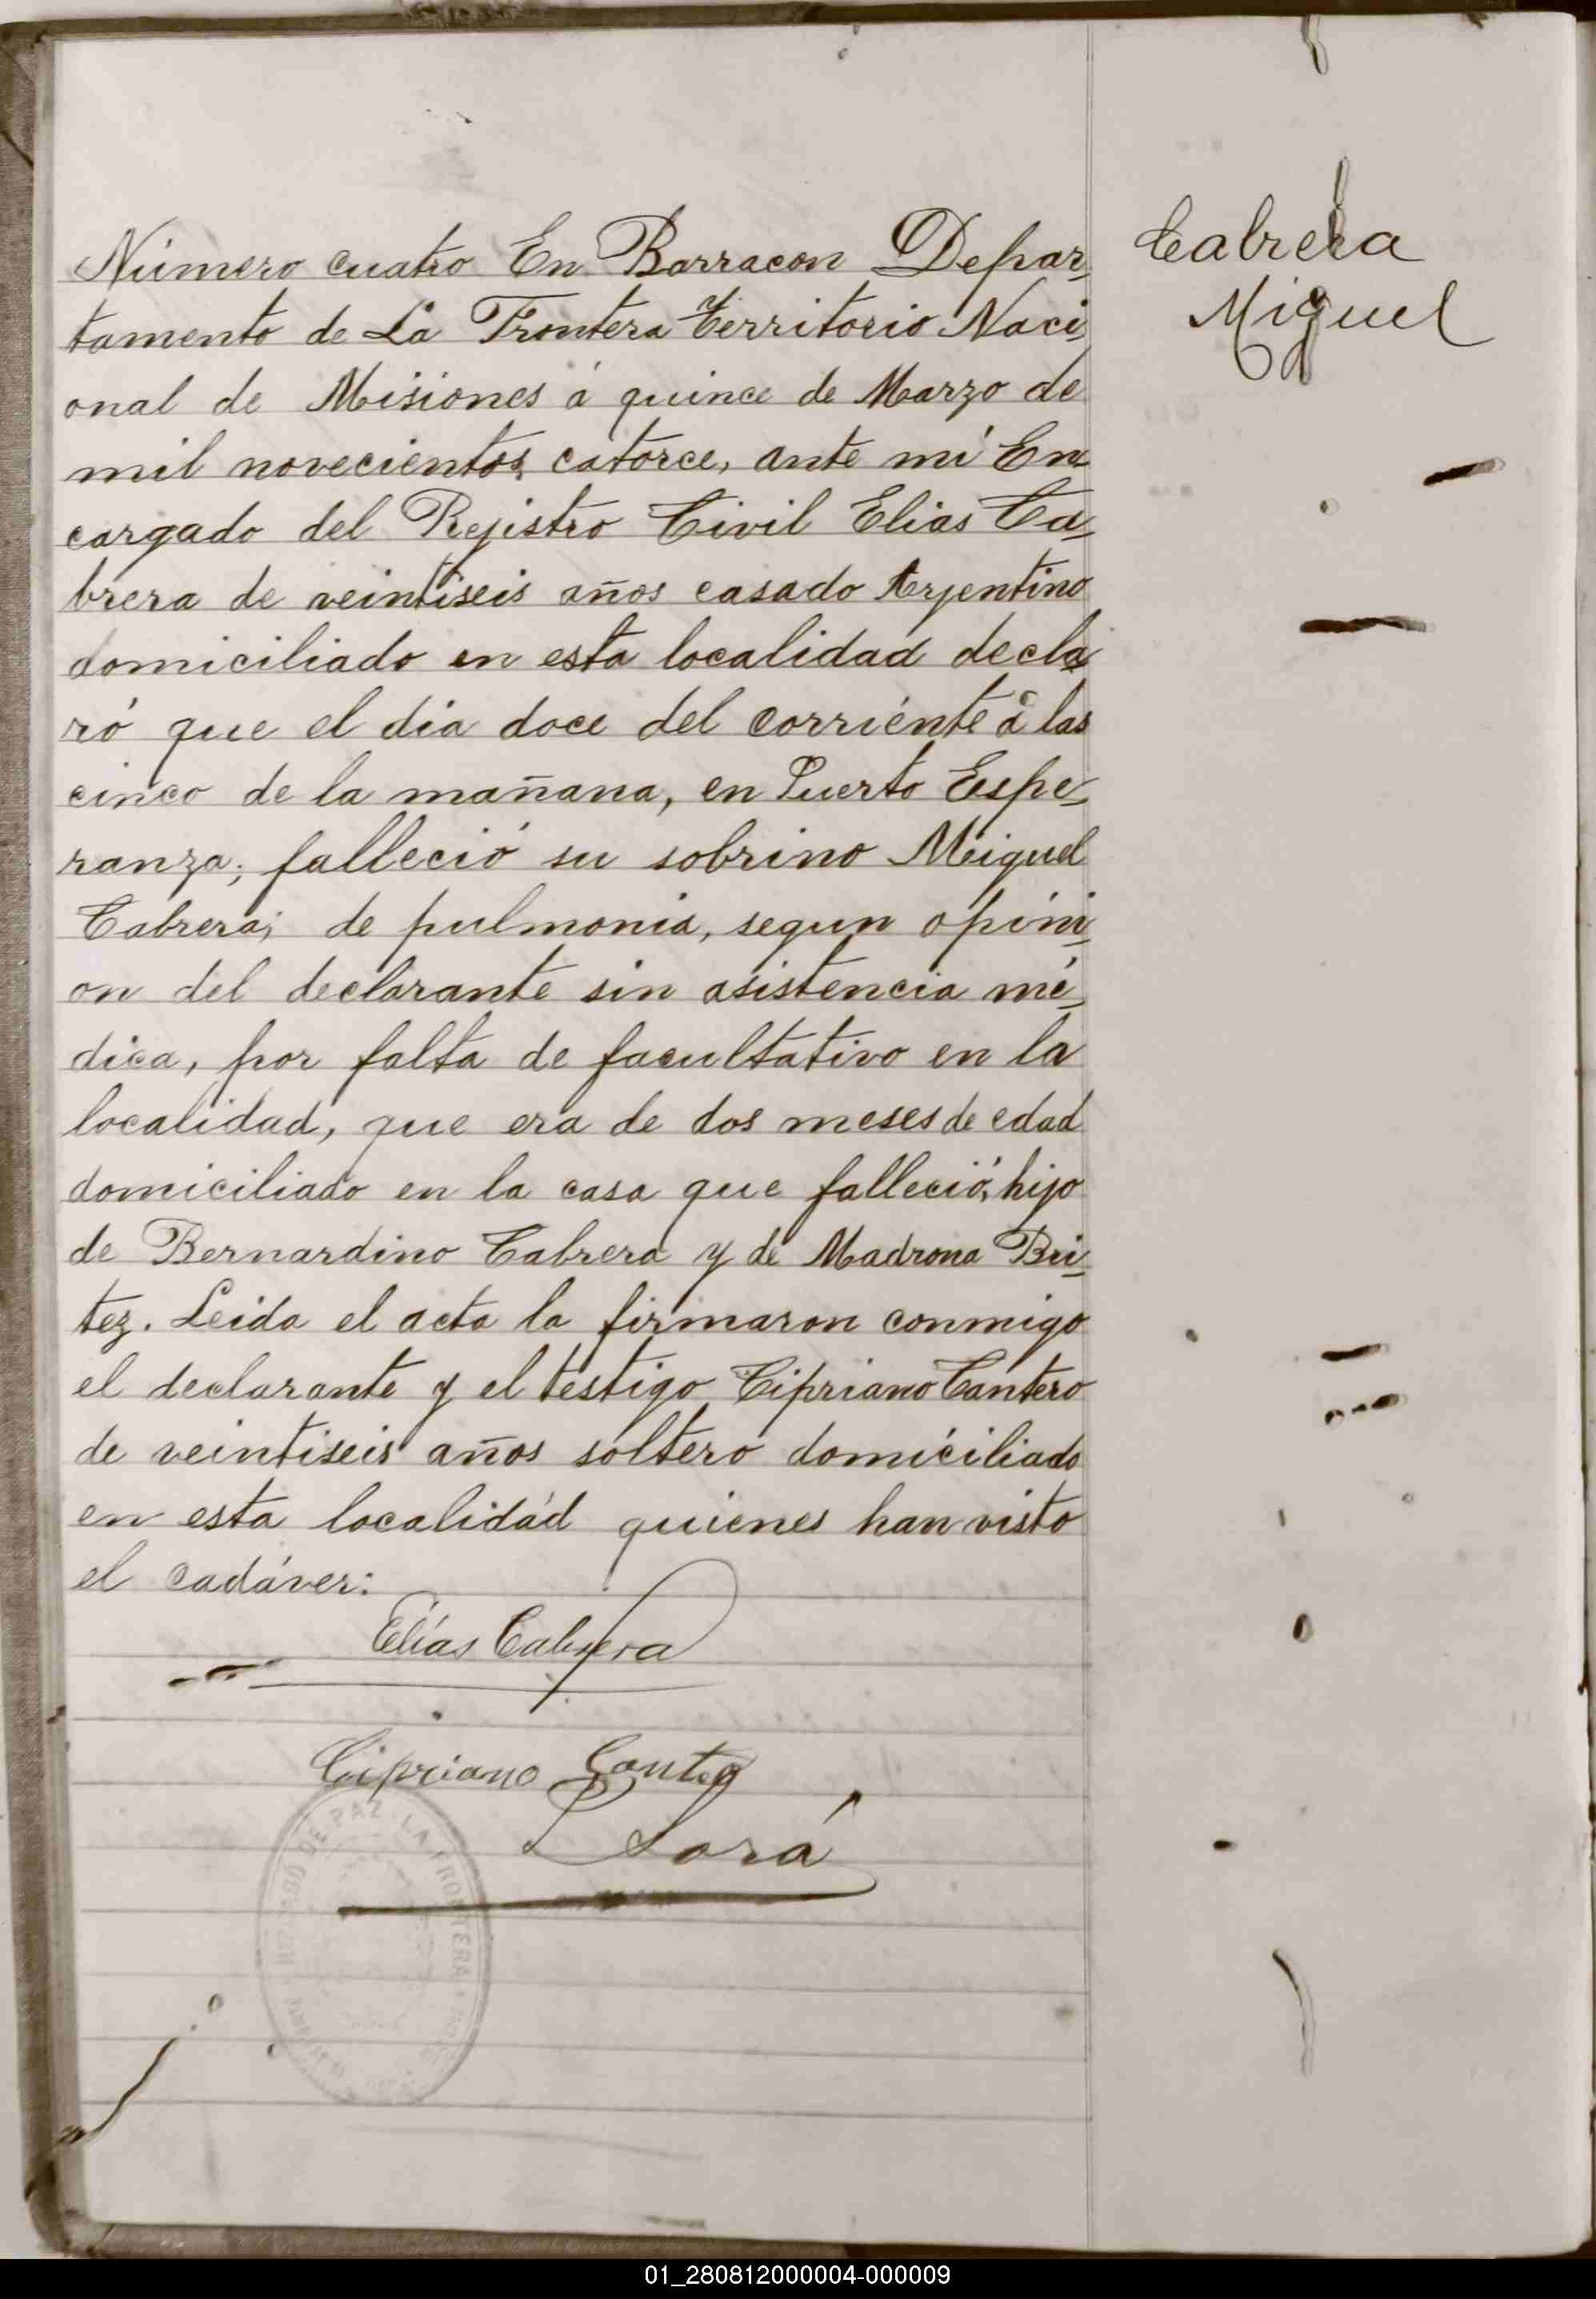 Cabrera
Miguel
Número cuatro En Barracon Depar-
tamento de La Frontera Territorio Naci-
onal de Misiones á quince de Marzo de
mil novecientos catorce, ante mi En-
cargado del Rejistro Civil Elias Ca-
brera de veintiseis años casado Arjentino
domiciliado en esta localidad decla
ró que el dia doce del corriente á las
cinco de la mañana, en Puerto Espe-
ranza; falleció su sobrino Miguel
Cabrera; de pulmonia, segun opini-
on del declarante sin asistencia mé-
dica, por falta de facultativo en la
localidad, que era de dos meses de edad
domiciliado en la casa que falleció, hijo
de Bernardino Cabrera y de Madrona Bri-
tez. Leida el acta la firmaron conmigo
el declarante y el testigo Cipriano Cantero
de veintiseis años soltero domiciliado
en esta localidad quienes han visto
el cadáver:
Elías Cabrera
Cipriano
DE PAZ LA FRONTERA
01_280812000004-000009